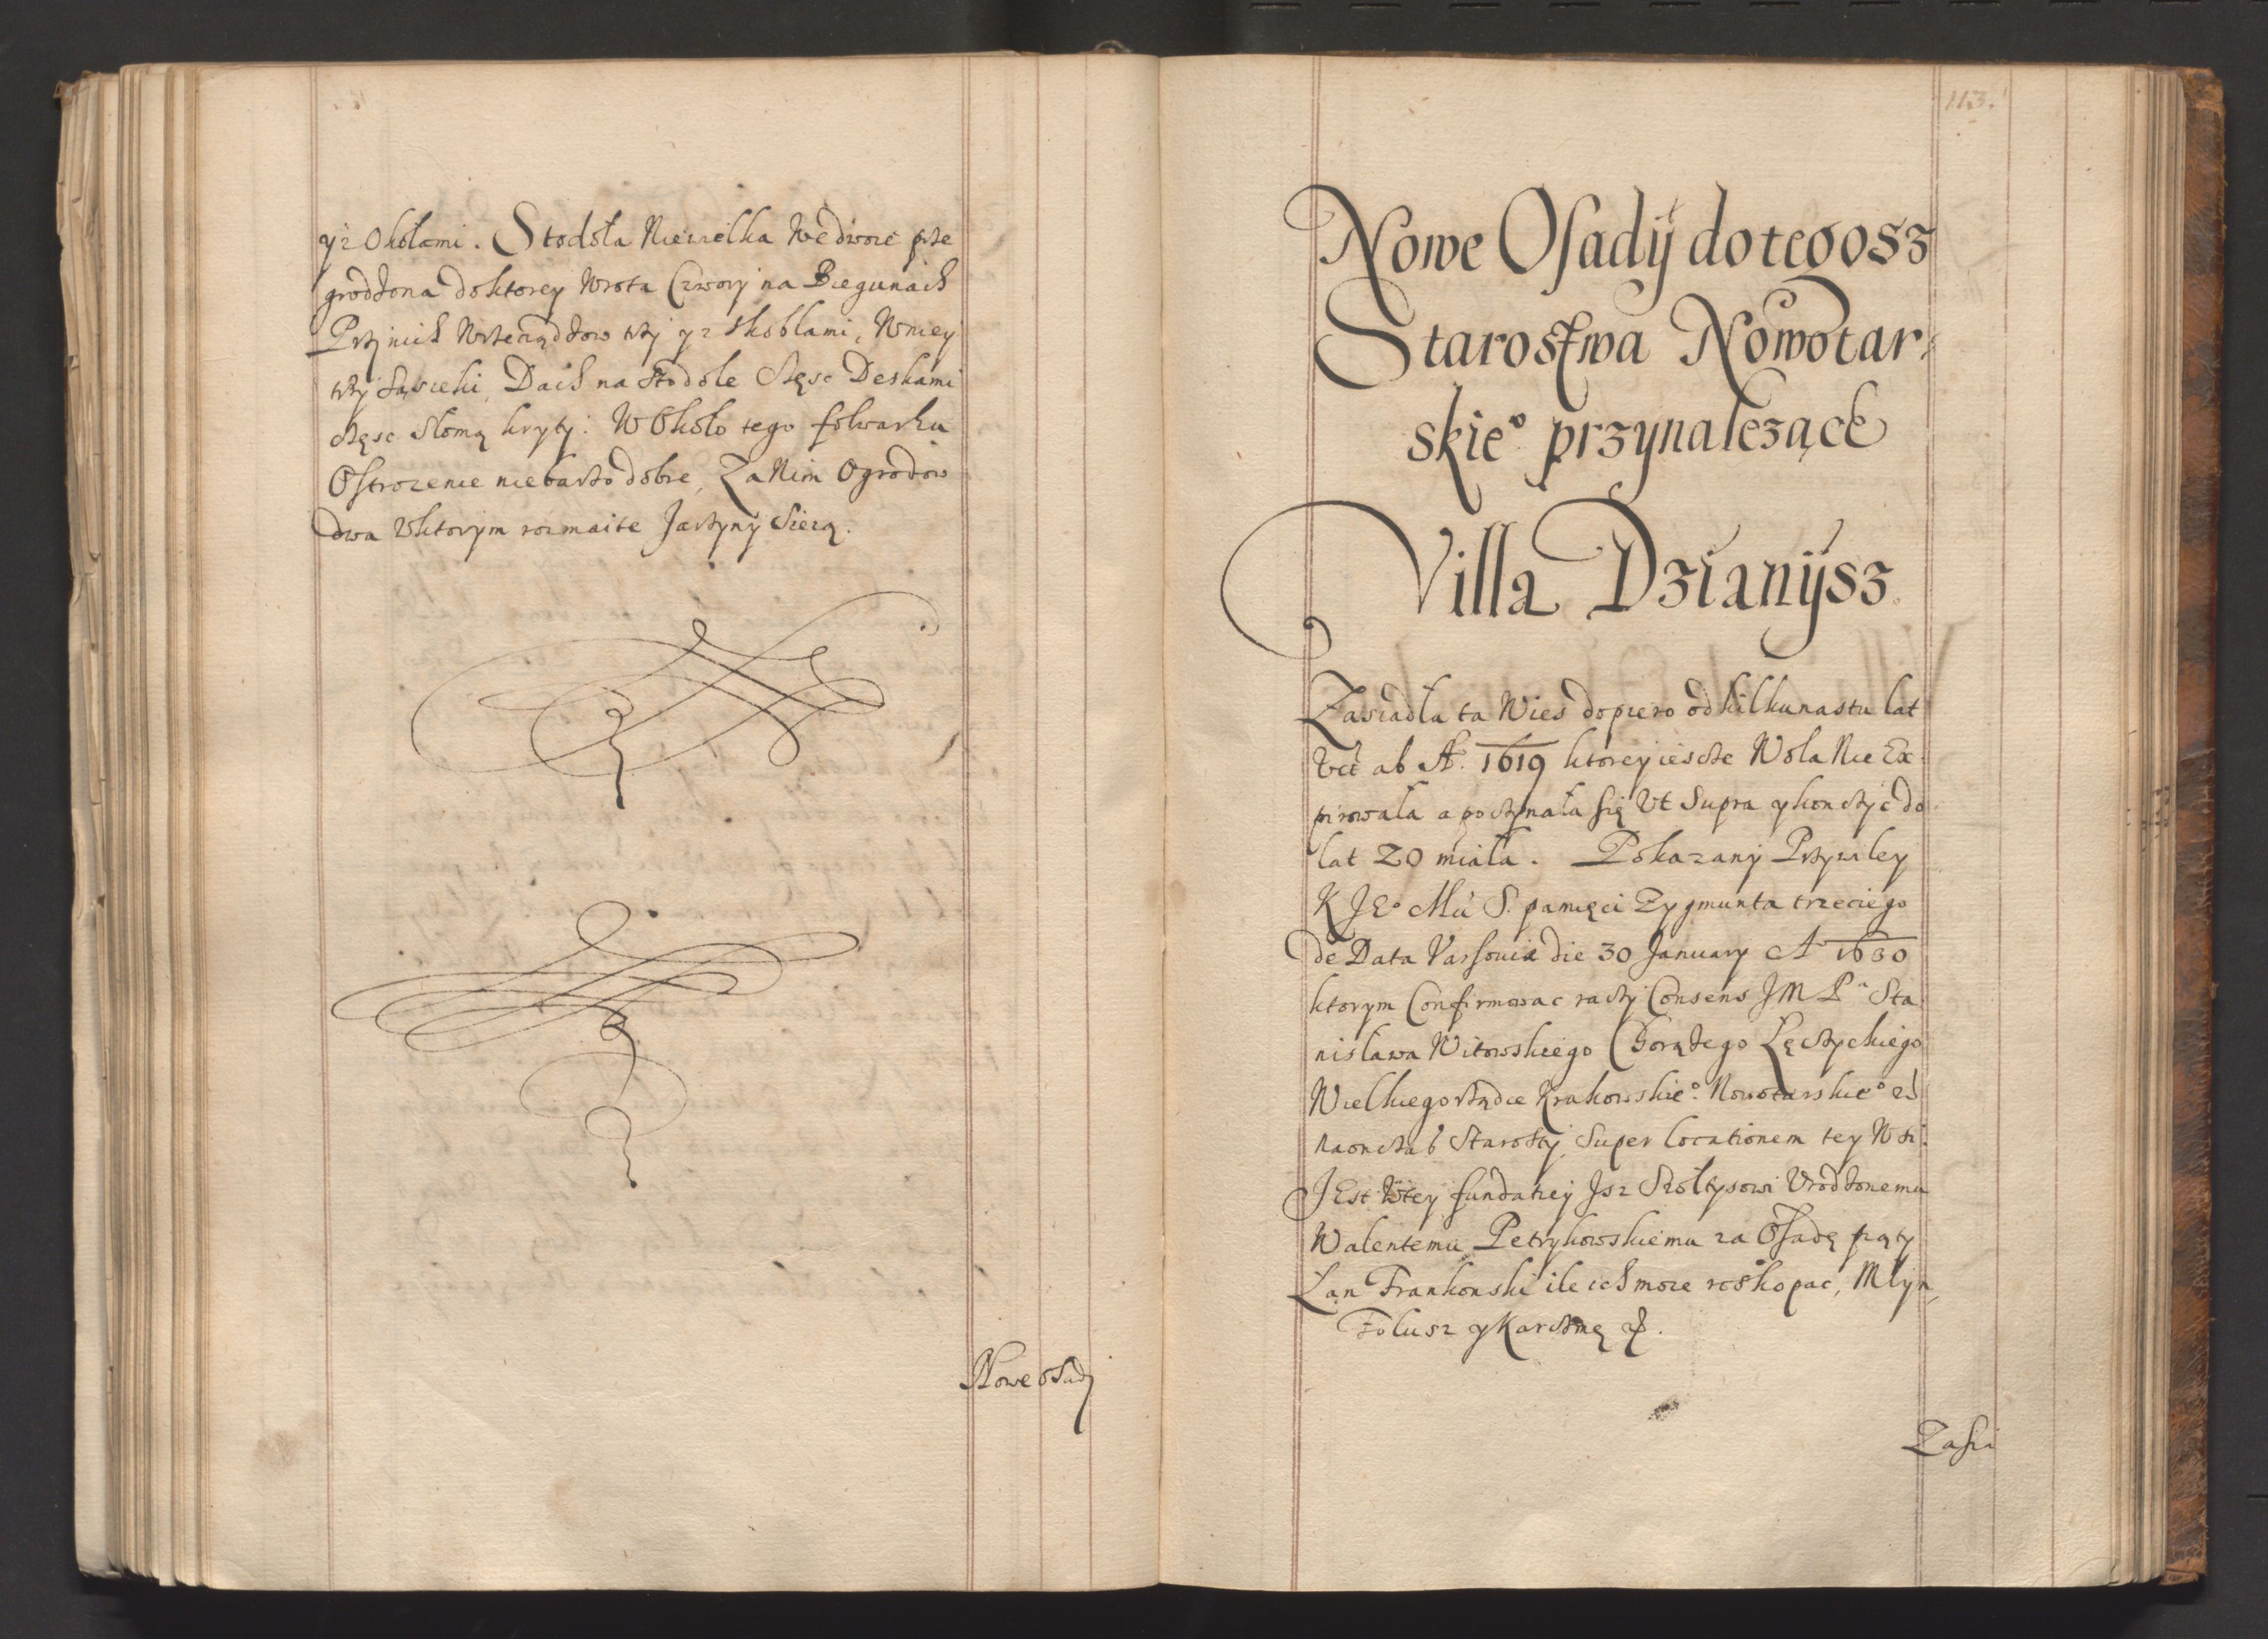 yz Okołami. Stodoła Niewielka We dworze prze
grodzona do ktorey Wrota Czwory na Biegunach
Przy nich Wrzeciądzow trzy yz skoblami, W niey
trzy Sąsieki, Dach na stodole część Deskami
część słomą kryty. W Około tego folwarku
Ostrozenie nie barzo dobre, Za Nim Ogrodow
dwa W ktorym rozmaite Jarzyny Sieią.
Nowe osady
113.
Nowe Osadÿ do tegosz
Starostwa Nowotar
skie° przynalezące
Villa Dzianÿsz
Zasiadła ta Wies dopiero od kilkunastu lat
Vtt ab A° 1619 ktorey iescze Wola Nie Ex
pirowała a poczynała się Vt Supra y konczyc do
lat 20 miała. Pokazany Przywiley
K JE° Mci S. pamięci Zygmunta trzeciego
de Data Varsoviæ die 30 January A° 1630
ktorym Confirmowac raczy Consens JM Pª Sta
nisława Witowskiego Chorązego Łęczyckiego
Wielkiego rządce Krakowskie° Nowotarskie° et
na on czas Starosty, Super locationem tey Wsi.
JEst W tey fundatiey Jsz Szołtysowi Vrodzonemu
Walentemu Petrykowskiemu za Osadę piąty
Łan Frankonski ile ich moze roskopac, Młyn,
Folusz y Karczmę
Zasia